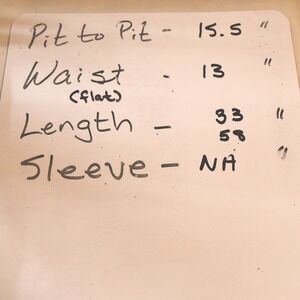 Pit to Pit - 15.5 "
Waist - 13 "
(flat)
Length - 33 "
58
Sleeve - NA "